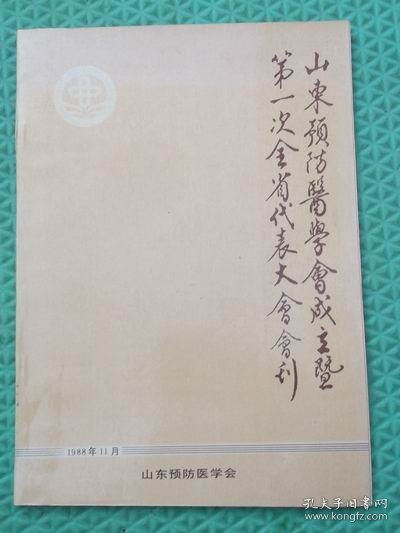 山東預防醫學會成立暨
第一次全省代表大會會刊
1988年11月
山东预防医学会
孔夫子旧书网
www.kongfz.com